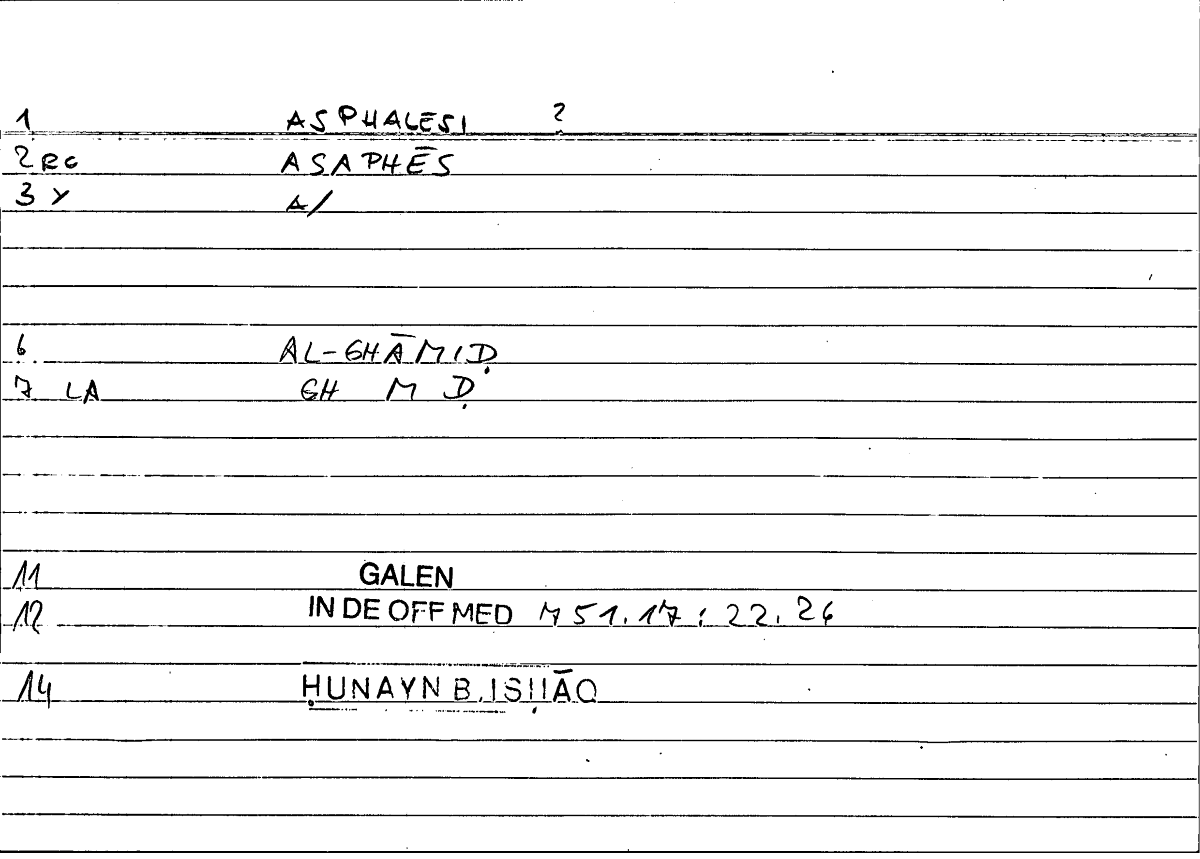 1 ASPHALESI ?
2 RG ASAPHĒS
3 Y A/
6 AL-GHĀMIḌ
7 LA GH M Ḍ
11 GALEN
12 IN DE OFF MED 751.17 : 22.26
14 ḤUNAYN B. ISḤĀQ